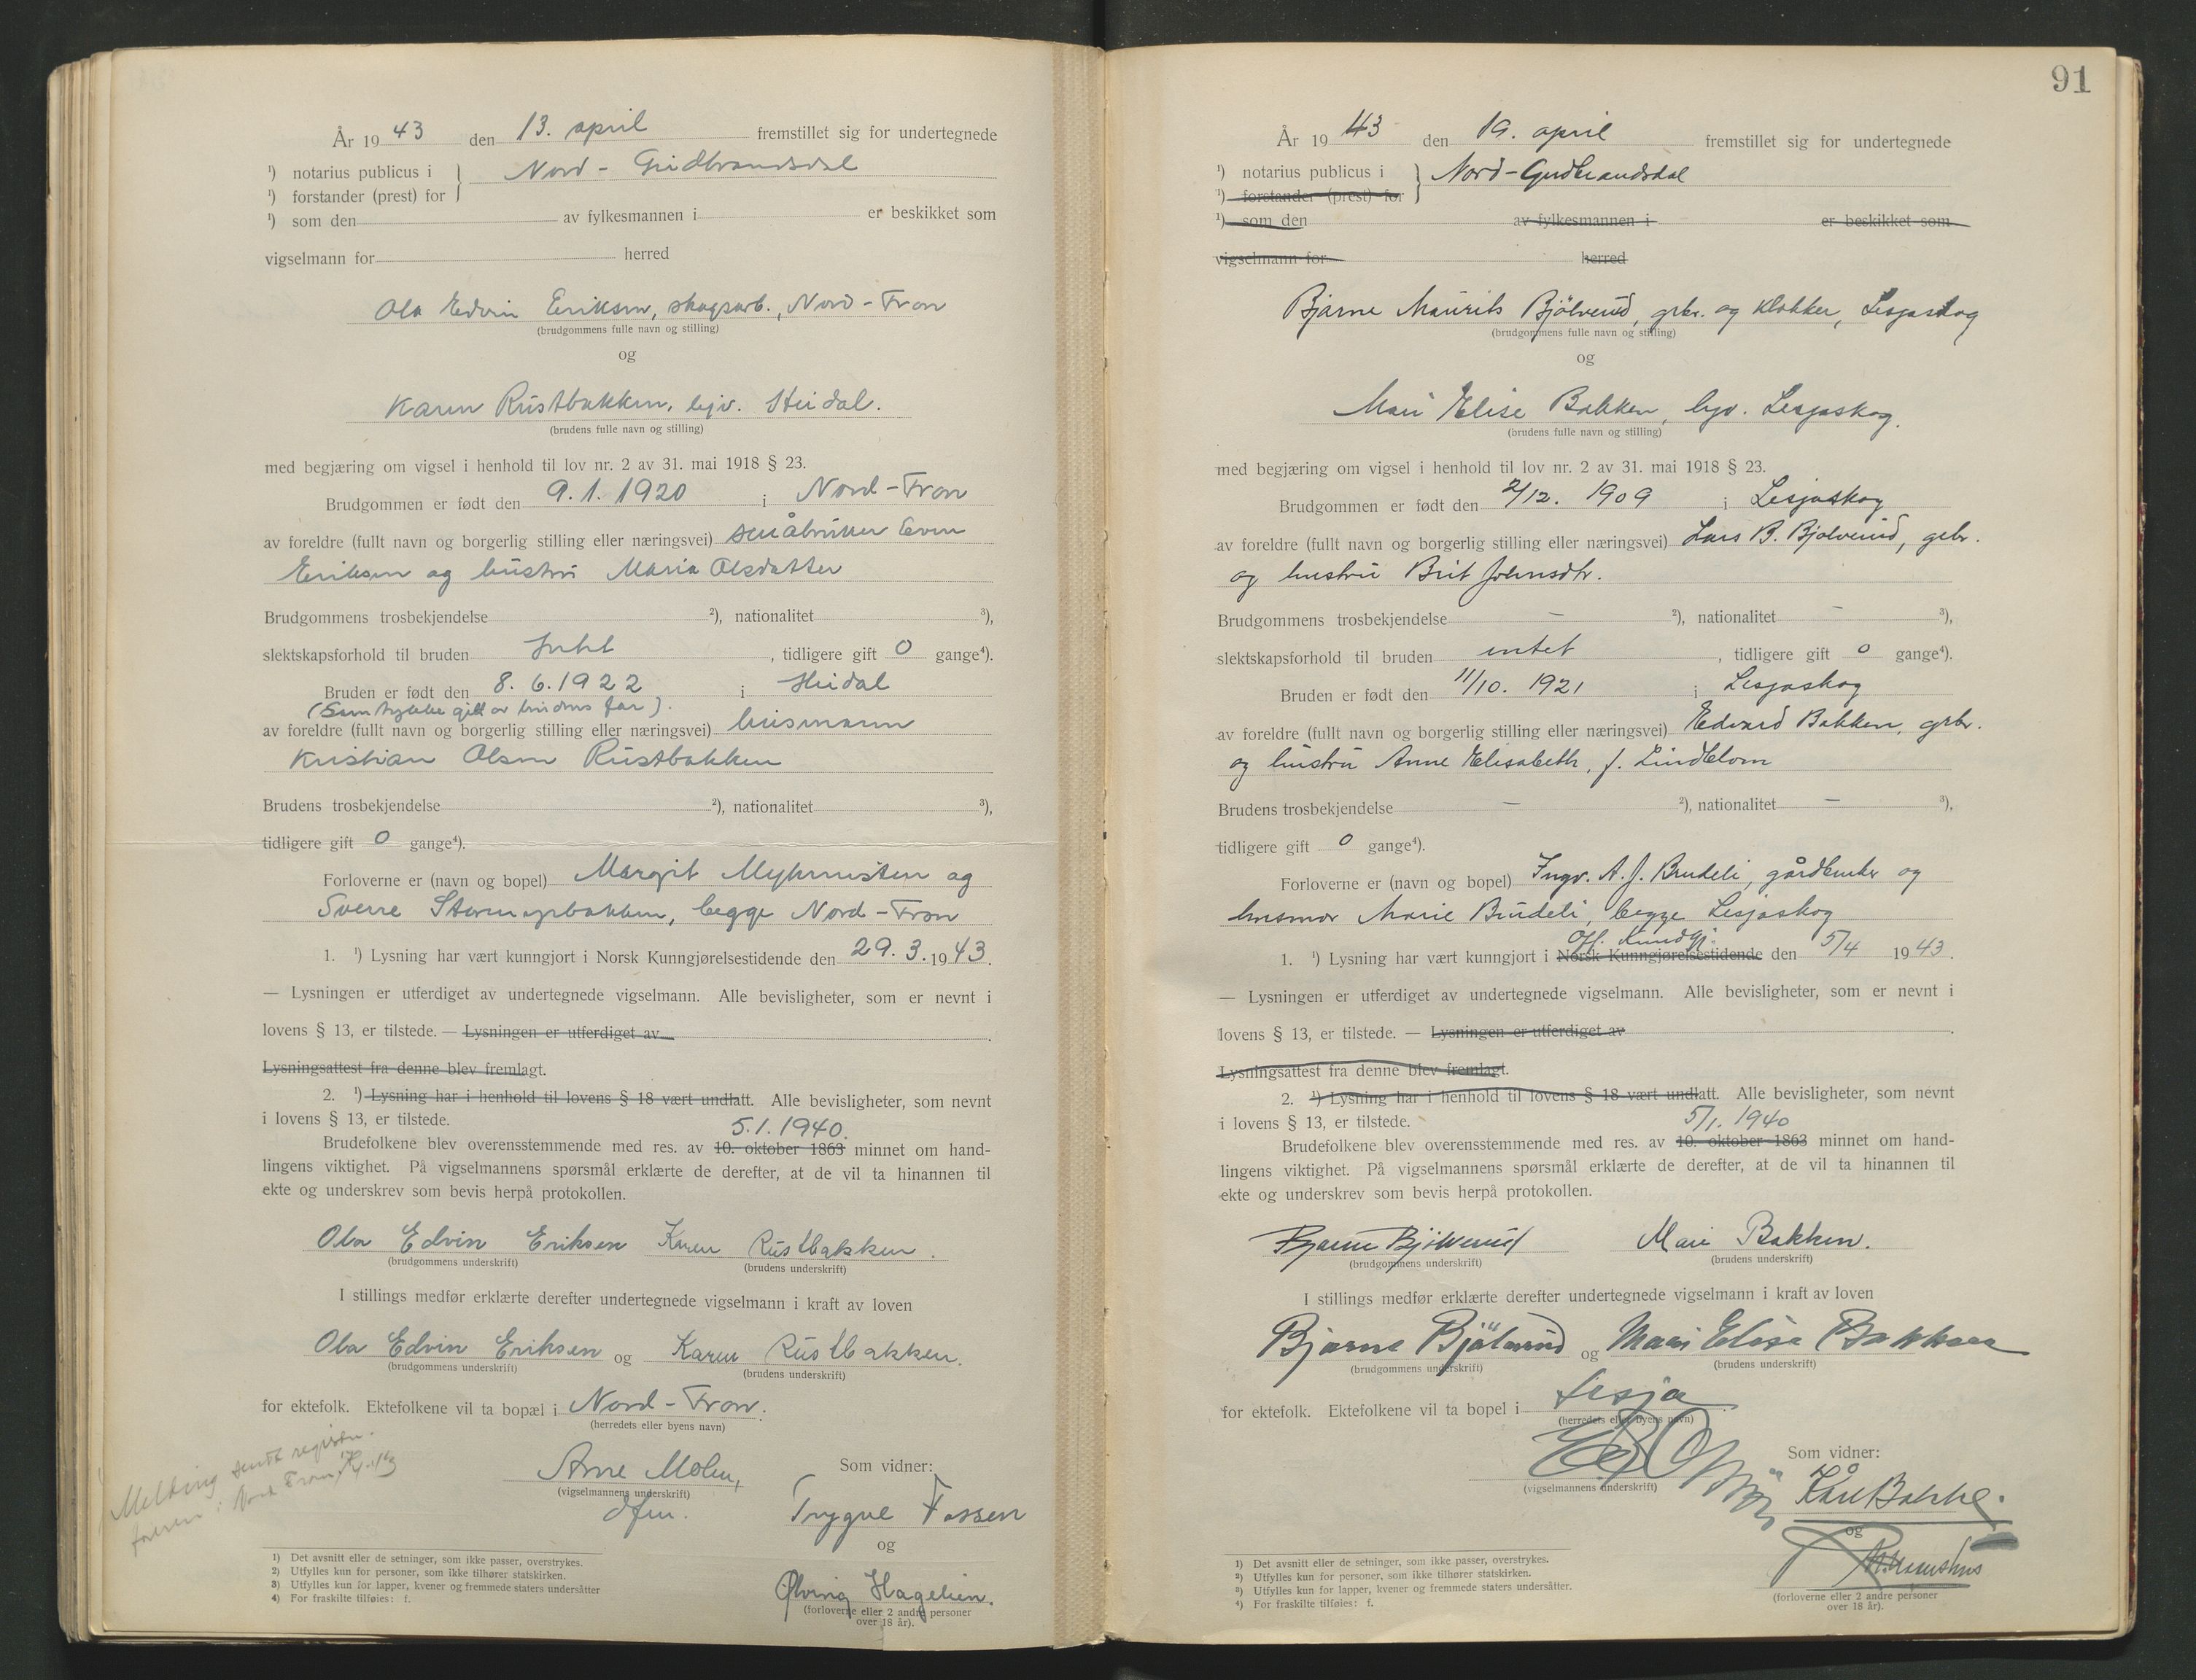 År 1943 den 13. april fremstillet sig for undertegnede
¹) notarius publicus i } Nord - Gudbrandsdal
¹) forstander (prest) for
¹) som den av fylkesmannen i er beskikket som
vigselmann for herred
Ola Edvin Eriksen, skogsarb., Nord-Fron
(brudgommens fulle navn og stilling)
og
Karen Rustbakken, hjv. Heidal.
(brudens fulle navn og stilling)
med begjæring om vigsel i henhold til lov nr. 2 av 31. mai 1918 § 23.
Brudgommen er født den 9.1.1920 i Nord-Fron
av foreldre (fullt navn og borgerlig stilling eller næringsvei) småbruker Even
Eriksen og hustru Maria Olsdatter
Brudgommens trosbekjendelse ²), nationalitet ³),
slektskapsforhold til bruden Intet, tidligere gift 0 gange⁴).
Bruden er født den 8.6.1922 i Heidal
(Samtykke gitt av brudens far).
av foreldre (fullt navn og borgerlig stilling eller næringsvei) husmann
Kristian Olsen Rustbakken
Brudens trosbekjendelse ²), nationalitet ³),
tidligere gift 0 gange⁴).
Forloverne er (navn og bopel) Margit og
Sverre begge Nord-Fron
1. ¹) Lysning har vært kunngjort i Norsk Kunngjørelsestidende den 29.3.1943.
— Lysningen er utferdiget av undertegnede vigselmann. Alle bevisligheter, som er nevnt i
lovens § 13, er tilstede. — Lysningen er utferdiget av
Lysningsattest fra denne blev fremlagt.
2. ¹) Lysning har i henhold til lovens § 18 vært undlatt. Alle bevisligheter, som nevnt
i lovens § 13, er tilstede. 5.1.1940.
Brudefolkene blev overensstemmende med res. av 10. oktober 1863 minnet om hand-
lingens viktighet. På vigselmannens spørsmål erklærte de derefter, at de vil ta hinannen til
ekte og underskrev som bevis herpå protokollen.
Ola Edvin Eriksen Karen Rustbakken.
(brudgommens underskrift) (brudens underskrift)
I stillings medfør erklærte derefter undertegnede vigselmann i kraft av loven
Ola Edvin Eriksen og Karen Rustbakken.
(brudgommens underskrift) (brudens underskrift)
for ektefolk. Ektefolkene vil ta bopæl i Nord-Fron.
(herredets eller byens navn)
Melding sendt
i Nord Fron
Arne Molen, Som vidner:
(vigselmannens underskrift)
dfm. Trygve Fossen
og
Øiving Hagelien.
(forloverne eller 2 andre personer
over 18 år).
1) Det avsnitt eller de setninger, som ikke passer, overstrykes.
2) Utfylles kun for personer, som ikke tilhører statskirken.
3) Utfylles kun for lapper, kvener og fremmede staters undersåtter
4) For fraskilte tilføies: f.
91
År 1943 den 19. april fremstillet sig for undertegnede
¹) notarius publicus i } Nord-Gudbrandsdal
¹) forstander (prest) for
¹) som den av fylkesmannen i er beskikket som
vigselmann for herred
Bjarne Maurits Bjølverud, grbr. og klokker, Lesjaskog
(brudgommens fulle navn og stilling)
og
Mari Elise Bakken, hjv. Lesjaskog.
(brudens fulle navn og stilling)
med begjæring om vigsel i henhold til lov nr. 2 av 31. mai 1918 § 23.
Brudgommen er født den 2/12. 1909 i Lesjaskog
av foreldre (fullt navn og borgerlig stilling eller næringsvei) Lars B. Bjølverud, grbr.
og hustru Brit Johnsdtr.
Brudgommens trosbekjendelse — ²), nationalitet — ³),
slektskapsforhold til bruden intet, tidligere gift 0 gange⁴).
Bruden er født den 11/10. 1921 i Lesjaskog
av foreldre (fullt navn og borgerlig stilling eller næringsvei) Edvard Bakken, grbr.
og hustru Anne Elisabeth, f. Lindblom
Brudens trosbekjendelse — ²), nationalitet — ³),
tidligere gift 0 gange⁴).
Forloverne er (navn og bopel) Ingv. A. J. Brudeli, gårdbruker og
husmor Marie Brudeli, begge Lesjaskog
Off. Kundgj.
1. ¹) Lysning har vært kunngjort i Norsk Kunngjørelsestidende den 5/4 1943.
— Lysningen er utferdiget av undertegnede vigselmann. Alle bevisligheter, som er nevnt i
lovens § 13, er tilstede. — Lysningen er utferdiget av
Lysningsattest fra denne blev fremlagt.
2. ¹) Lysning har i henhold til lovens § 18 vært undlatt. Alle bevisligheter, som nevnt
i lovens § 13, er tilstede. 5/1. 1940
Brudefolkene blev overensstemmende med res. av 10. oktober 1863 minnet om hand-
lingens viktighet. På vigselmannens spørsmål erklærte de derefter, at de vil ta hinannen til
ekte og underskrev som bevis herpå protokollen.
Bjarne Bjølverud Mari Bakken.
(brudgommens underskrift) (brudens underskrift)
I stillings medfør erklærte derefter undertegnede vigselmann i kraft av loven
Bjarne Bjölverud og Mari Elise Bakken
(brudgommens underskrift) (brudens underskrift)
for ektefolk. Ektefolkene vil ta bopel i Lesja
(herredets eller byens navn)
Som vidner:
(vigselmannens underskrift)
Kåre Bakke.
og
(forloverne eller 2 andre personer
over 18 år).
1) Det avsnitt eller de setninger, som ikke passer, overstrykes.
2) Utfylles kun for personer, som ikke tilhører statskirken.
3) Utfylles kun for lapper, kvener og fremmede staters undersåtter.
4) For fraskilte tilføies: f.